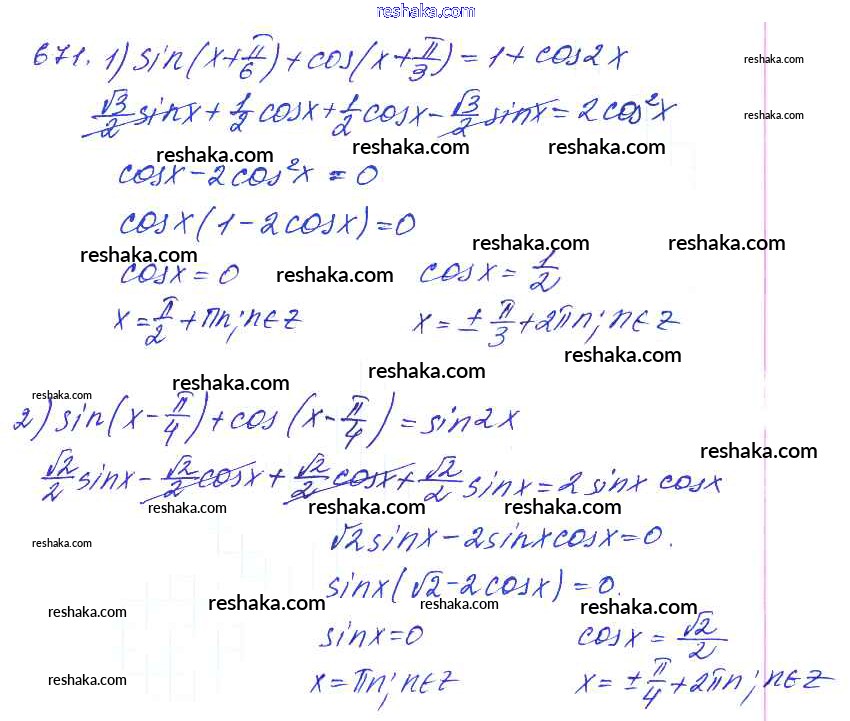 reshaka.com
671. 1) sin(x+π/6)+cos(x+π/3)=1+cos2x
reshaka.com
√3/2 sinx+1/2 cosx+1/2 cosx-√3/2 sinx=2cos²x
reshaka.com
reshaka.com reshaka.com reshaka.com
cosx-2cos²x=0
cosx(1-2cosx)=0
reshaka.com reshaka.com reshaka.com reshaka.com
cosx=0 cosx=1/2
x=π/2+πn; n∈Z x=±π/3+2πn; n∈Z
reshaka.com
reshaka.com reshaka.com reshaka.com
2) sin(x-π/4)+cos(x-π/4)=sin2x
reshaka.com
√2/2 sinx-√2/2 cosx+√2/2 cosx+√2/2 sinx=2sinx cosx
reshaka.com reshaka.com reshaka.com
√2sinx-2sinxcosx=0.
reshaka.com
sinx(√2-2cosx)=0.
reshaka.com reshaka.com reshaka.com reshaka.com
sinx=0 cosx=√2/2
x=πn; n∈Z x=±π/4+2πn; n∈Z
reshaka.com